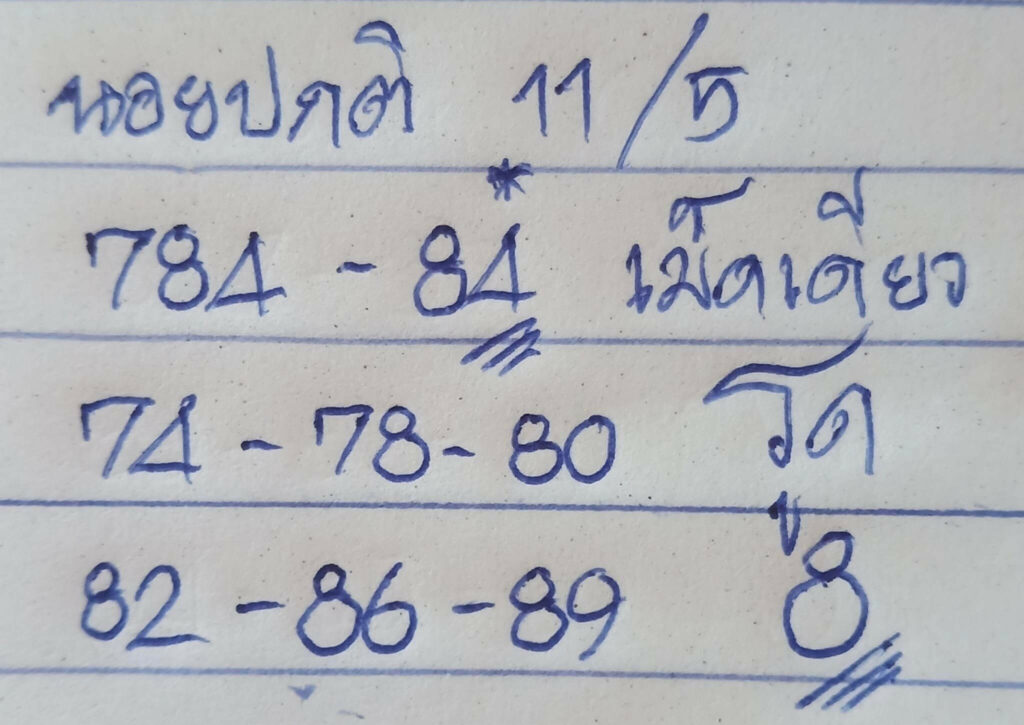 นอยปกติ 11/5
784 - 84* เม็ดเดียว
74 - 78 - 80 รูด
82 - 86 - 89 8